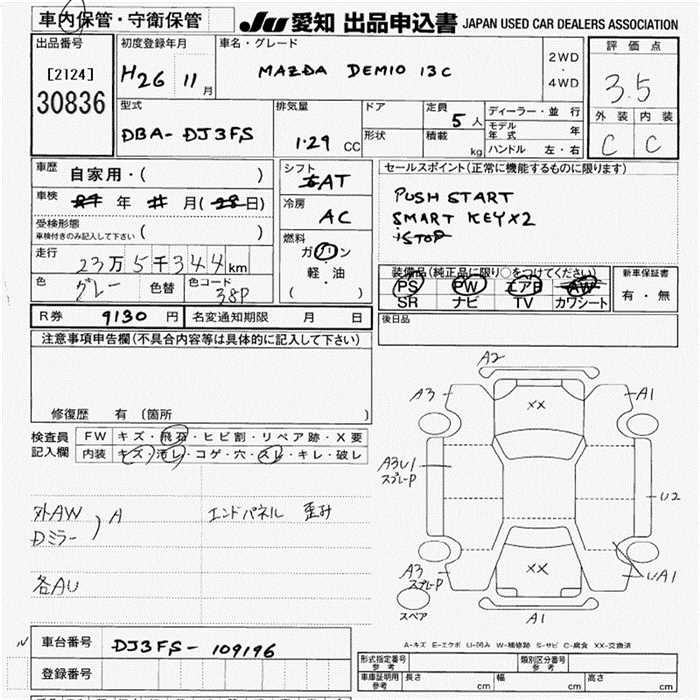 車内保管・守衛保管
JU 愛知 出品申込書 JAPAN USED CAR DEALERS ASSOCIATION
出品番号
[2124]
30836
初度登録年月
H26 11月
車名・グレード
MAZDA DEMIO 13C
2WD
・
4WD
評価点
3.5
外装 内装
C C
型式
DBA-DJ3FS
排気量
1.29 CC
ドア
形状
定員
5人
積載
kg
ディーラー・並行
モデル年式 年
ハンドル 左・右
車歴
自家用・( )
車検
年 月( 日)
受検形態
車検付きのみ記入して下さい ( )
走行
23万5千344km
色
グレー 色替 色コード
38P
シフト
AT
冷房
AC
燃料
ガソリン
軽・油
( )
セールスポイント(正常に機能するものに限ります)
PUSH START
SMART KEY×2
iSTOP
装備品(純正品に限り○をつけてください)
PS PW エアB AW
SR ナビ TV カワシート
新車保証書
有・無
R券 9130円 名変通知期限 月 日
後日品
注意事項申告欄(不具合内容等は具体的に記入して下さい)
修復歴 有(箇所 )
検査員
記入欄
FW キズ・飛石・ヒビ割・リペア跡・X要
内装 キズ・汚レ・コゲ・穴・スレ・キレ・破レ
外AW
Dミラー
) A
エンドパネル 歪み
各AU
A2
A3 A1
XX
A3U1
スプレーP
U2
XX
A3
スプレーP
UA1
スペア
A1
A-キズ E-エクボ U-凹み W-補修跡 S-サビ C-腐食 XX-交換済
車台番号
DJ3FS-109196
登録番号
型式指定番号
参考
類別区分番号
参考
車庫証明用
参考
長さ cm 幅 cm 高さ cm